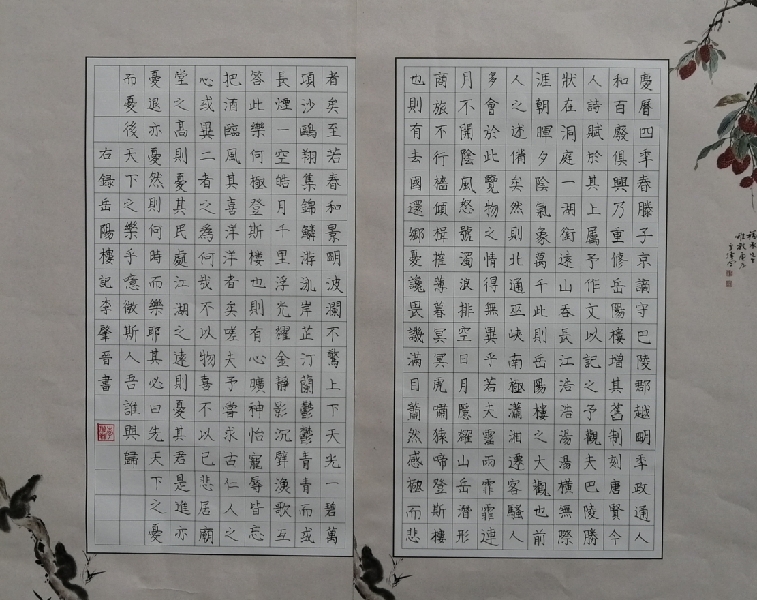 慶曆四年春滕子京謫守巴陵郡越明年政通人
和百廢俱興乃重修岳陽樓增其舊制刻唐賢今
人詩賦於其上屬予作文以記之予觀夫巴陵勝
狀在洞庭一湖銜遠山吞長江浩浩湯湯橫無際
涯朝暉夕陰氣象萬千此則岳陽樓之大觀也前
人之述備矣然則北通巫峽南極瀟湘遷客騷人
多會於此覽物之情得無異乎若夫霪雨霏霏連
月不開陰風怒號濁浪排空日月隱耀山岳潛形
商旅不行檣傾楫摧薄暮冥冥虎嘯猿啼登斯樓
也則有去國還鄉憂讒畏譏滿目蕭然感極而悲
者矣至若春和景明波瀾不驚上下天光一碧萬
頃沙鷗翔集錦鱗游泳岸芷汀蘭鬱鬱青青而或
長煙一空皓月千里浮光耀金靜影沉璧漁歌互
答此樂何極登斯樓也則有心曠神怡寵辱皆忘
把酒臨風其喜洋洋者矣嗟夫予嘗求古仁人之
心或異二者之為何哉不以物喜不以己悲居廟
堂之高則憂其民處江湖之遠則憂其君是進亦
憂退亦憂然則何時而樂耶其必曰先天下之憂
而憂後天下之樂乎噫微斯人吾誰與歸
右錄岳陽樓記李肇晉書